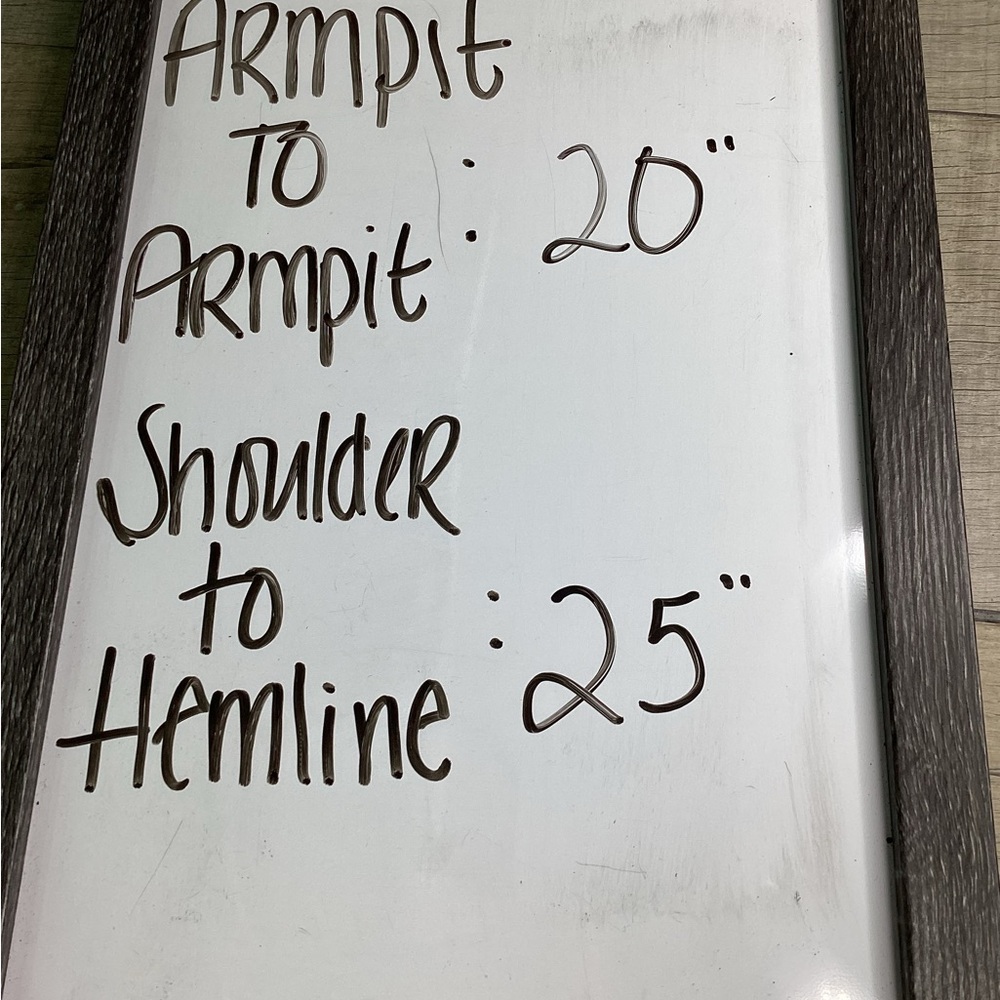 Armpit
To
Armpit : 20"
Shoulder
to
Hemline : 25"